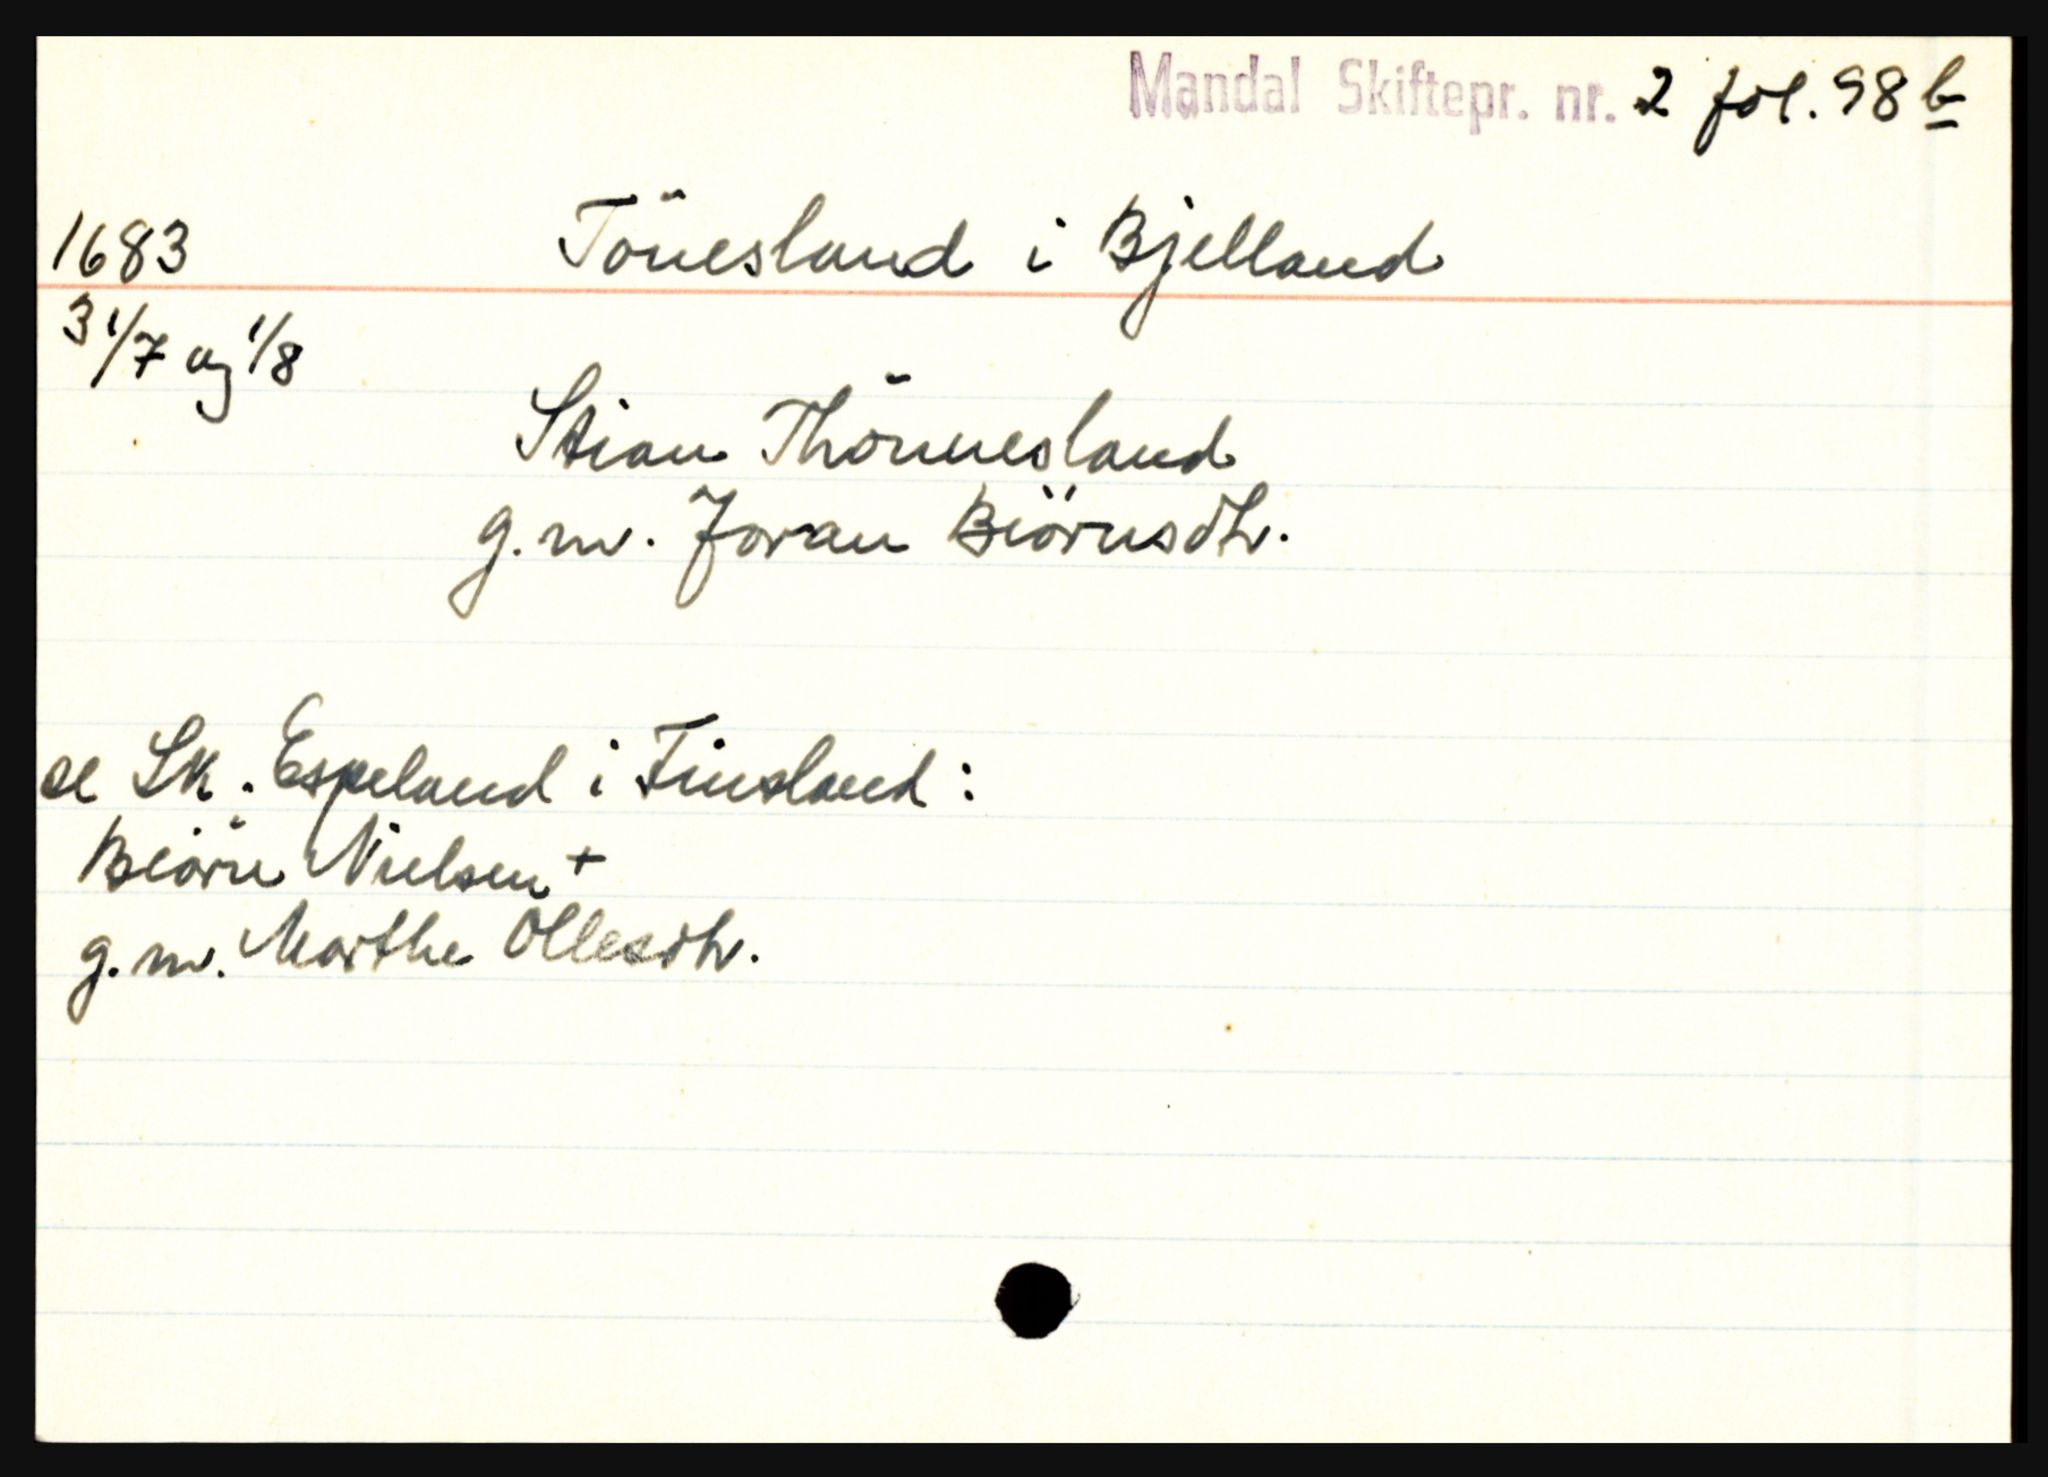 Mandal Skiftepr. nr. 2 fol. 98 b
1683 Tönesland i Bjelland
31/7 og 1/8
Stian Thönnesland
g.m. Joran Biörnsdtr.
se Sk. Espeland i Finsland:
Biörn Nielsen +
g.m. Marthe Ollesdtr.